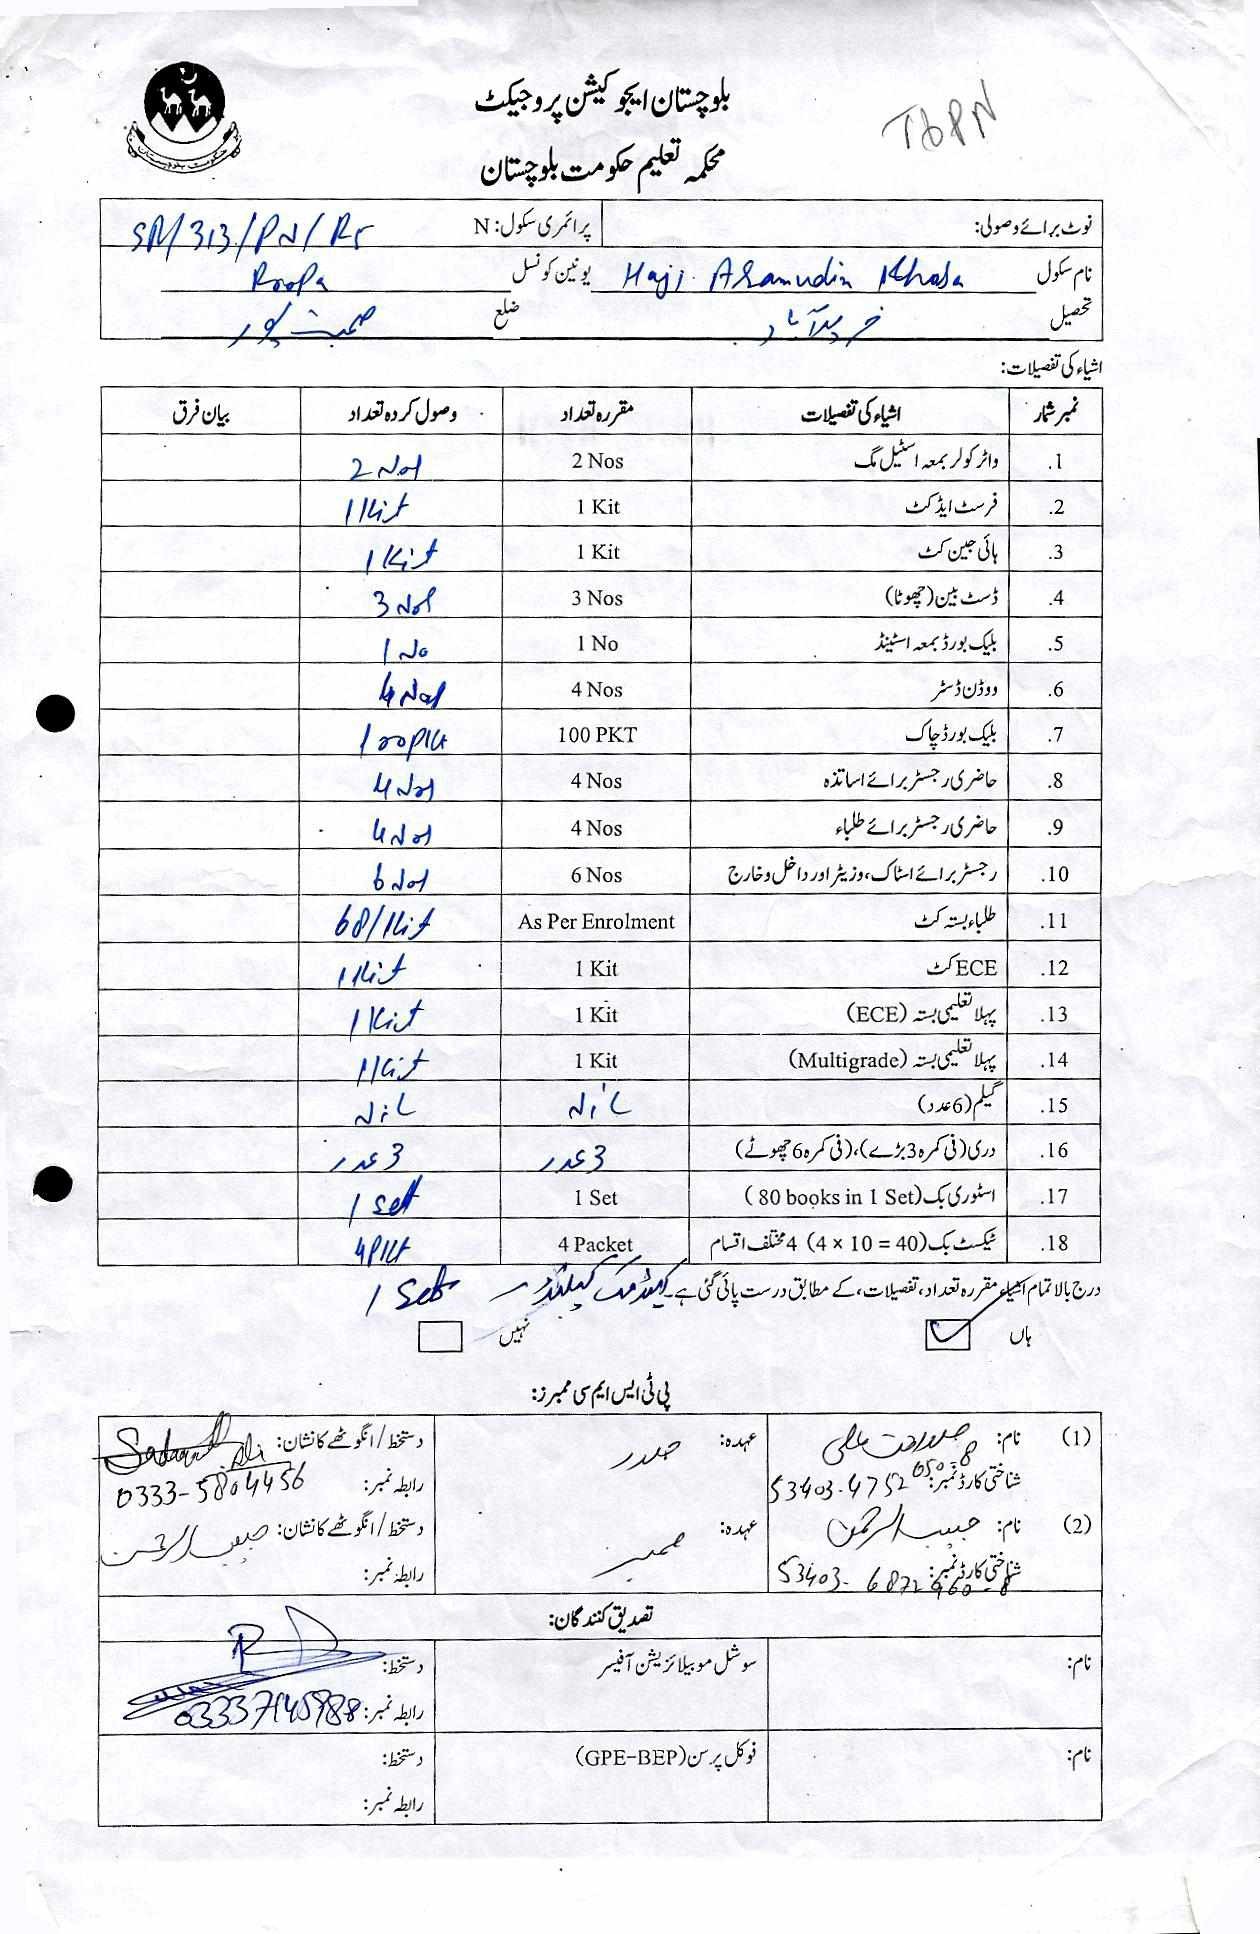 بلوچستان ایجوکیشن پروجیکٹ
TbPN
محکمہ تعلیم حکومت بلوچستان
حکومت بلوچستان
نوٹ برائے وصولی: پرائمری سکول: N SR/313/PN/Rr
نام سکول Haji Alamudin Khosa یونین کونسل Roopa
تحصیل فریدآباد ضلع صحبت پور
اشیاء کی تفصیلات:
نمبر شمار اشیاء کی تفصیلات مقررہ تعداد وصول کردہ تعداد بیان فرق
.1 واٹر کولر بمعہ اسٹیل مگ 2 Nos 2 Nos
.2 فرسٹ ایڈ کٹ 1 Kit 1 Kit
.3 ہائی جین کٹ 1 Kit 1 Kit
.4 ڈسٹ بین (چھوٹا) 3 Nos 3 Nos
.5 بلیک بورڈ بمعہ اسٹینڈ 1 No 1 No
.6 ووڈن ڈسٹر 4 Nos 4 Nos
.7 بلیک بورڈ چاک 100 PKT 100 PKt
.8 حاضری رجسٹر برائے اساتذہ 4 Nos 4 Nos
.9 حاضری رجسٹر برائے طلباء 4 Nos 4 Nos
.10 رجسٹر برائے اسٹاک، وزیٹر اور داخل و خارج 6 Nos 6 Nos
.11 طلباء بستہ کٹ As Per Enrolment 68/Kit
.12 ECE کٹ 1 Kit 1 Kit
.13 پہلا تعلیمی بستہ (ECE) 1 Kit 1 Kit
.14 پہلا تعلیمی بستہ (Multigrade) 1 Kit 1 Kit
.15 گیلم (6 عدد) Nil Nil
.16 دری (فی کمرہ 3 بڑے)، (فی کمرہ 6 چھوٹے) 3 عدد 3 عدد
.17 اسٹوری بک (80 books in 1 Set) 1 Set 1 Set
.18 ٹیکسٹ بک (4 x 10 = 40) 4 مختلف اقسام 4 Packet 4 PKt
درج بالا تمام اشیاء مقررہ تعداد، تفصیلات، کے مطابق درست پائی گئی ہے۔ 1 Set
ہاں نہیں
پی ٹی ایس ایم سی ممبرز:
(1) نام: صداقت علی عہدہ: صدر دستخط/انگوٹھے کا نشان: Sadaqat Ali
شناختی کارڈ نمبر: 53403-4752050-8 رابطہ نمبر: 0333-5804456
(2) نام: حبیب الرحمن عہدہ: ممبر دستخط/انگوٹھے کا نشان: حبیب الرحمن
شناختی کارڈ نمبر: 53403-6872960-8 رابطہ نمبر:
تصدیق کنندگان:
نام: سوشل موبیلائزیشن آفیسر دستخط:
رابطہ نمبر: 03337145988
نام: فوکل پرسن (GPE-BEP) دستخط:
رابطہ نمبر: